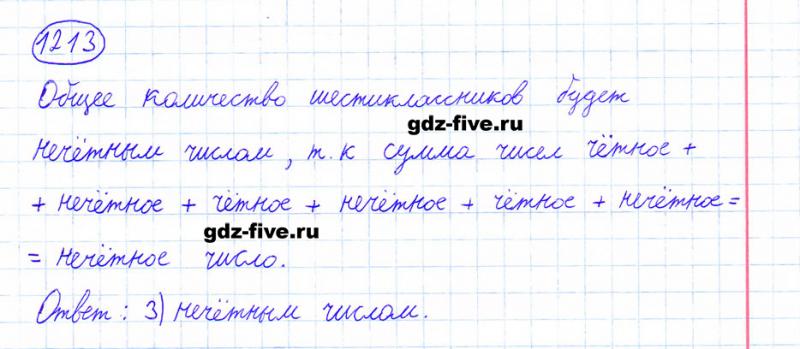 1213
Общее количество шестиклассников будет
gdz-five.ru
нечётным числом, т.к сумма чисел чётное +
+ нечётное + чётное + нечётное + чётное + нечётное =
gdz-five.ru
= нечётное число.
Ответ: 3) нечётным числом.